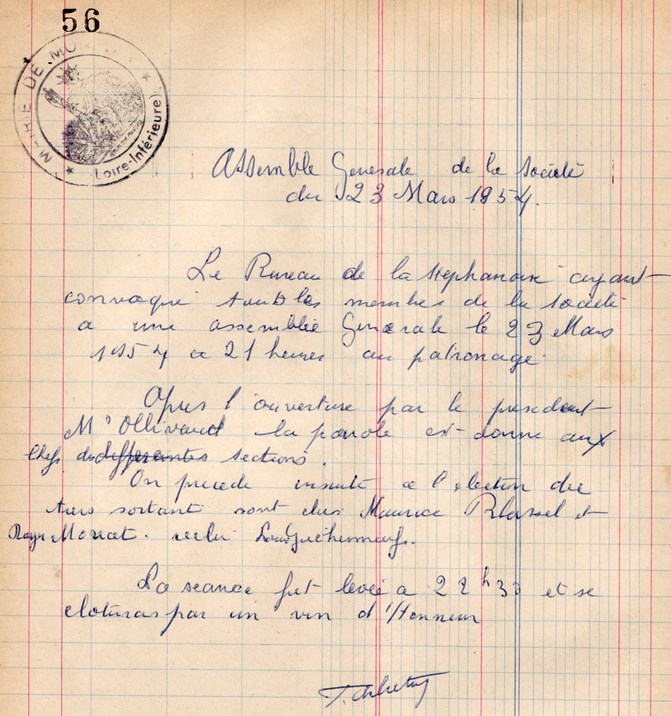 56
MAIRIE DE MO
(Loire-Inférieure)
Assemble Generale de la Société
du 23 Mars 1954.
Le Bureau de la Stephanoise ayant
convoqué tous les membres de la société
a une assemblée Generale le 23 Mars
1954 a 21 heures au patronage.
Apres l'ouverture par le president
Mr la parole est donne aux
Chefs de differentes sections.
On procede insuite a l'election du
tiers sortant sont elus Maurice et
Roger
La seance fut levée a 22h30 et se
cloturas par un vin d'Honneur